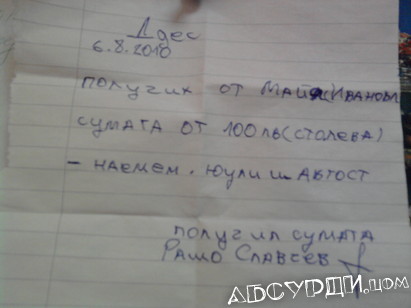 Днес
6.8.2010
получих от Майя Иванова
сумата от 100 лв (столева)
- наемем. юули и Автост
получил сумата
Рамо Славеев
АБСУРДИ.ЦОМ